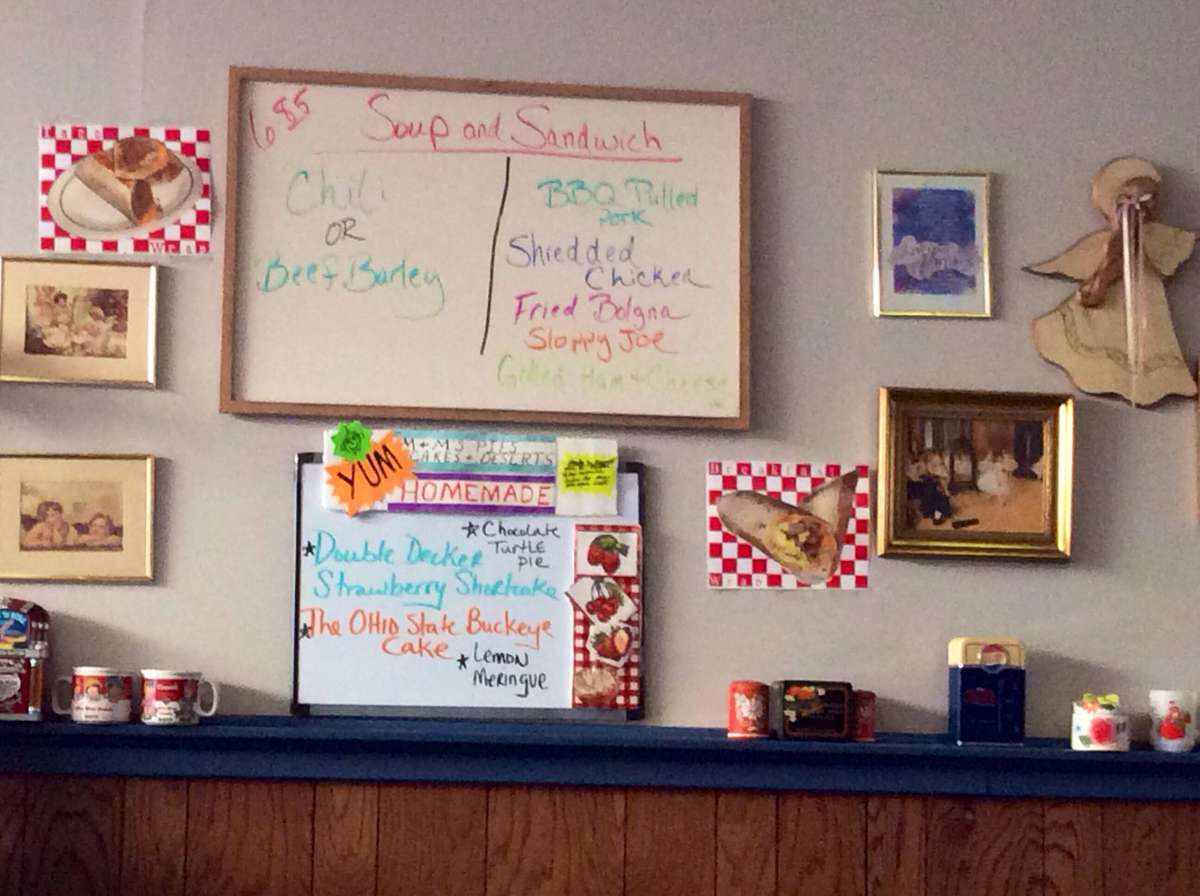 6 85
Soup and Sandwich
Chili
OR
Beef Barley
BBQ Pulled
Pork
Shredded
Chicken
Fried Bologna
Sloppy Joe
Grilled Ham + Cheese
Taco
Wrap
YUM
M+M'S PIES
CAKES + DESERTS
HOMEMADE
Chocolate
Turtle
pie
Double Decker
Strawberry Shortcake
The OHIO State Buckeye
Cake
Lemon
Meringue
Breakfast
Wrap